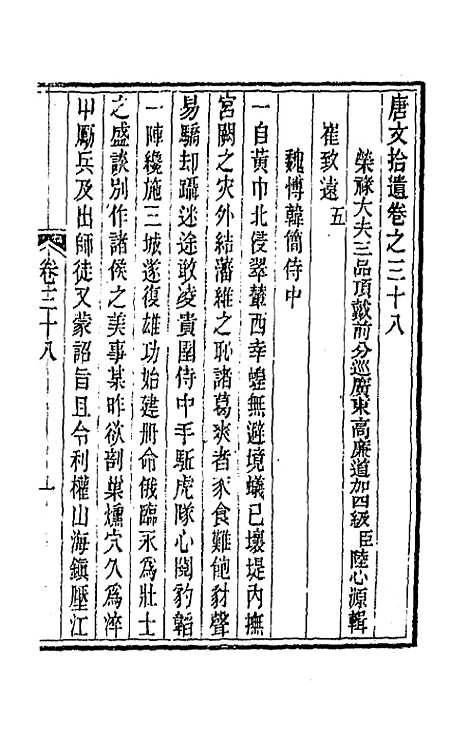 唐文拾遺卷之三十八
榮祿大夫三品頂戴前分巡廣東高廉道加四級臣陸心源輯
崔致遠五
魏博韓簡侍中
一自黃巾北侵翠輦西幸蝗無避境蟻已壞堤內撫
宮闕之灾外結藩維之恥諸葛爽者豕食難飽豺聲
易驕却躡迷途敢凌貴圉侍中手駈虎隊心閱豹韜
一陣纔施三城遂復雄功始建册命俄臨永爲壯士
之盛談別作諸侯之美事某昨欲剖巢燻穴久爲淬
甲勵兵及出師徒又蒙詔旨且令利權山海鎭壓江
卷三十八